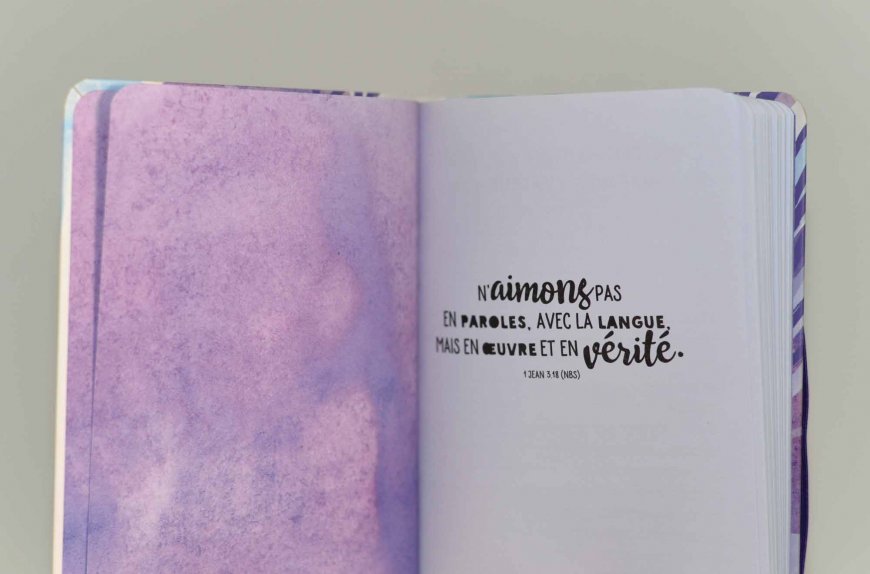 N'aimons PAS
EN PAROLES, AVEC LA LANGUE,
MAIS EN ŒUVRE ET EN vérité.
1 JEAN 3.18 (NBS)